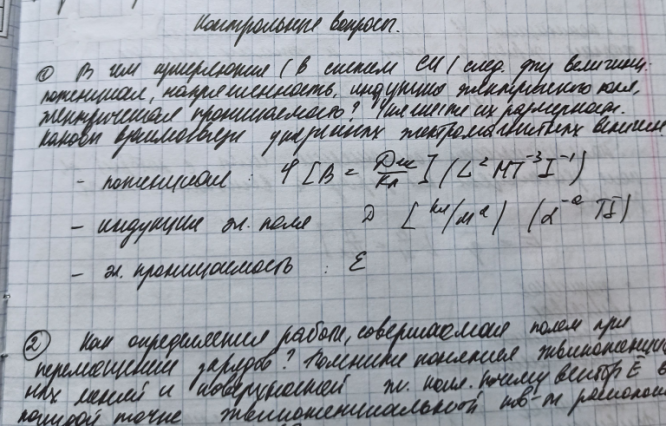 Контрольные вопросы.
① В чем измеряются (в системе СИ) след. физ величины:
потенциал, напряженность, индукция электрического поля,
электрическая проницаемость? Напишите их размерности.
Каковы взаимосвязи указанных электромагнитных величин
- потенциал : φ [В = Дж/Кл] (L² M T⁻³ I⁻¹)
- индукция эл. поля D [Кл/м²) (L⁻² T I)
- эл. проницаемость : ε
② Как определяется работа, совершаемая полем при
перемещении зарядов? Понятие эквипотенциаль
ных линий и поверхностей эл. поля. Почему вектор E в
каждой точке эквипотенциальной пов-ти располож